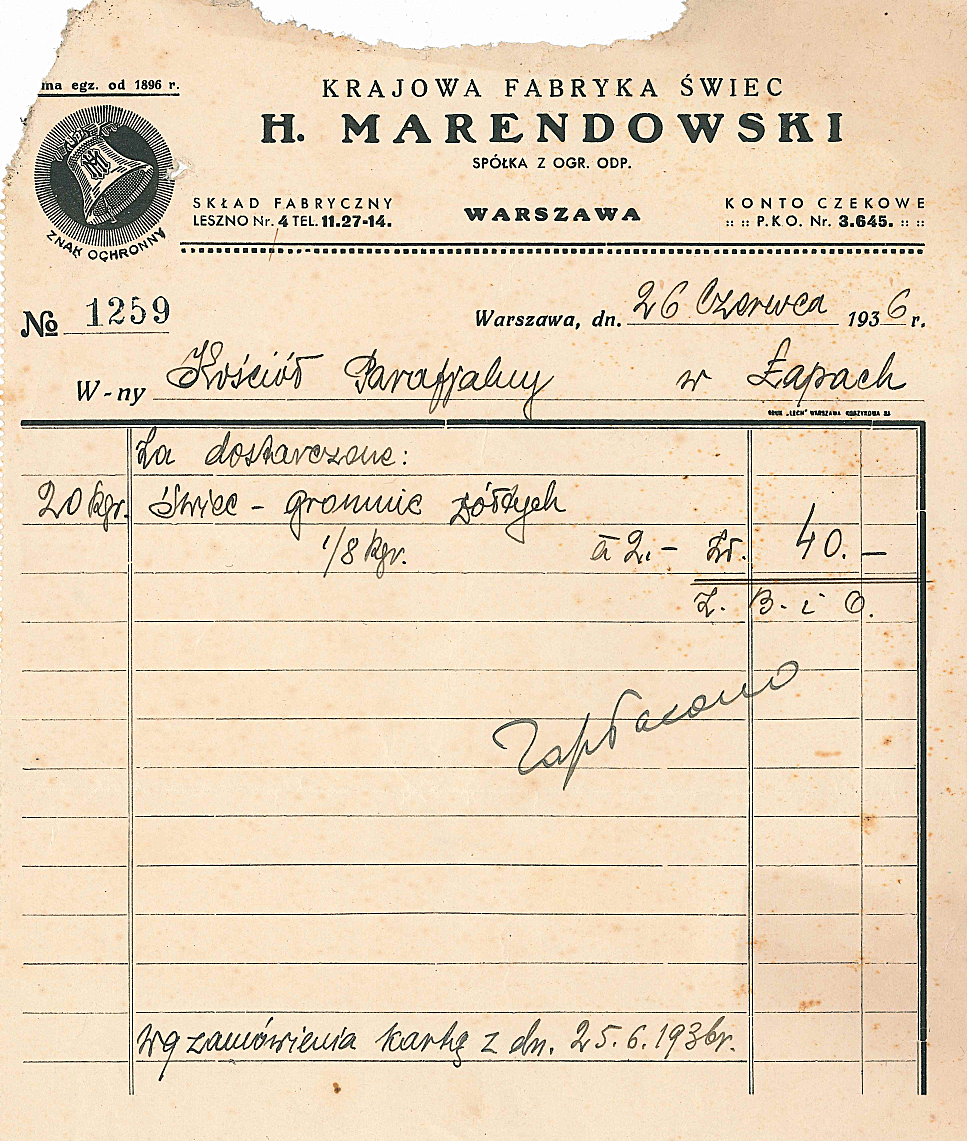 ma egz. od 1896 r.
KRAJOWA FABRYKA ŚWIEC
H. MARENDOWSKI
SPÓŁKA Z OGR. ODP.
SKŁAD FABRYCZNY
LESZNO Nr. 4 TEL. 11.27-14.
WARSZAWA
KONTO CZEKOWE
:: :: P.K.O. Nr. 3.645. :: ::
ZNAK OCHRONNY
No 1259
Warszawa, dn. 26 Czerwca 1936 r.
W-ny Kościół Parafjalny w Łapach
DRUK „LECH" WARSZAWA
Za dostarczone:
20 kgr. Świec - gromnic żółtych
1/8 kgr. à 2.- Zł. 40.-
Z. B. i O.
Zapłacono
Wg zamówienia kartką z dn. 25.6.1936r.